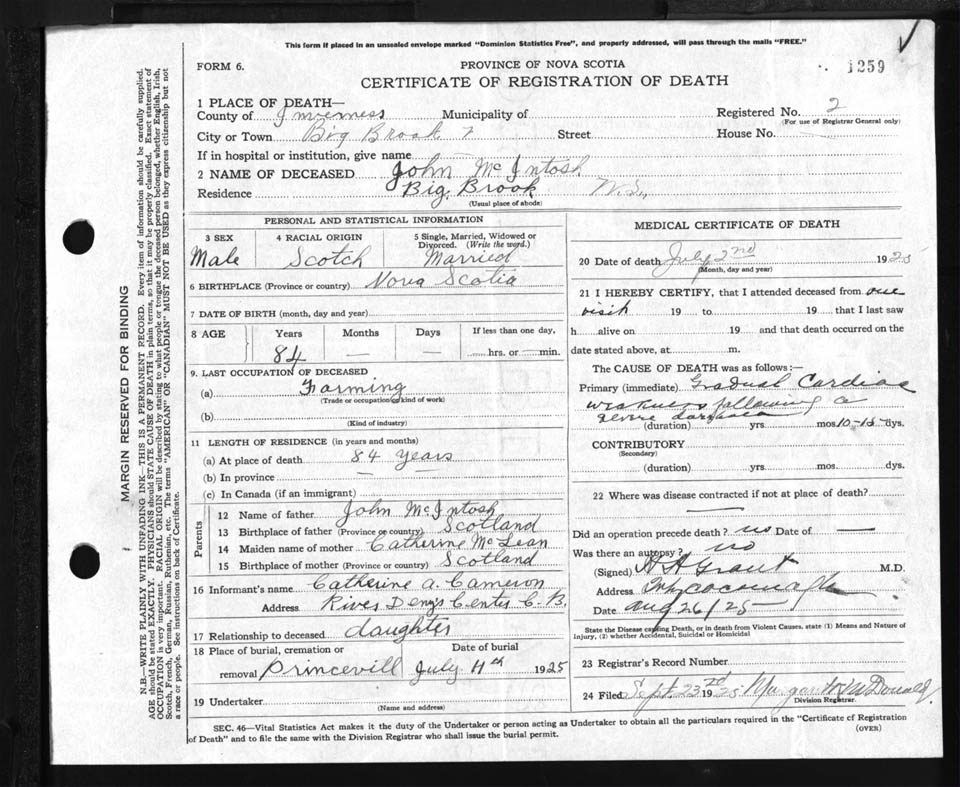 This form if placed in an unsealed envelope marked "Dominion Statistics Free", and properly addressed, will pass through the mails "FREE."
FORM 6.
PROVINCE OF NOVA SCOTIA
1259
CERTIFICATE OF REGISTRATION OF DEATH
1 PLACE OF DEATH—
County of Inverness Municipality of Registered No. 2
(For use of Registrar General only)
City or Town Big Brook Street House No.
If in hospital or institution, give name
2 NAME OF DECEASED John McIntosh
Residence Big Brook N.S.
(Usual place of abode)
PERSONAL AND STATISTICAL INFORMATION
3 SEX
Male
4 RACIAL ORIGIN
Scotch
5 Single, Married, Widowed or Divorced. (Write the word.)
Married
6 BIRTHPLACE (Province or country) Nova Scotia
7 DATE OF BIRTH (month, day and year)
8 AGE Years Months Days If less than one day,
84 — — hrs. or min.
9. LAST OCCUPATION OF DECEASED
(a) Farming
(Trade or occupation or kind of work)
(b)
(Kind of industry)
11 LENGTH OF RESIDENCE (in years and months)
(a) At place of death 84 years
(b) In province —
(c) In Canada (if an immigrant)
Parents
12 Name of father John McIntosh
13 Birthplace of father (Province or country) Scotland
14 Maiden name of mother Catherine McLean
15 Birthplace of mother (Province or country) Scotland
16 Informant's name Catherine A. Cameron
Address River Denys Center C.B.
17 Relationship to deceased daughter
18 Place of burial, cremation or removal Princevill
Date of burial
July 4th 1925
19 Undertaker
(Name and address)
MEDICAL CERTIFICATE OF DEATH
20 Date of death July 2nd 1925
(Month, day and year)
21 I HEREBY CERTIFY, that I attended deceased from one
visit 19 to 19 that I last saw
h alive on 19 and that death occurred on the
date stated above, at m.
The CAUSE OF DEATH was as follows:—
Primary (immediate) Gradual Cardiac
weakness following a
severe
(duration) yrs. mos. 10-15 dys.
CONTRIBUTORY
(Secondary)
(duration) yrs. mos. dys.
22 Where was disease contracted if not at place of death?
—
Did an operation precede death? no Date of —
Was there an autopsy? no
(Signed) Grant M.D.
Address Whycocomagh
Date Aug 26/25
State the Disease causing Death, or in death from Violent Causes, state (1) Means and Nature of
Injury, (2) whether Accidental, Suicidal or Homicidal
23 Registrar's Record Number
24 Filed Sept. 23rd 1925 McDonald
Division Registrar.
SEC. 46—Vital Statistics Act makes it the duty of the Undertaker or person acting as Undertaker to obtain all the particulars required in the "Certificate of Registration
of Death" and to file the same with the Division Registrar who shall issue the burial permit.
(OVER)
MARGIN RESERVED FOR BINDING
N.B.—WRITE PLAINLY WITH UNFADING INK—THIS IS A PERMANENT RECORD. Every item of information should be carefully supplied.
AGE should be stated EXACTLY. PHYSICIANS should STATE CAUSE OF DEATH in plain terms, so that it may be properly classified. Exact statement of
OCCUPATION is very important. RACIAL ORIGIN will be described by stating to what people or tongue the deceased person belonged, whether English, Irish,
Scotch, French, German, Russian, Ruthenian, etc. The terms "AMERICAN" or "CANADIAN" MUST NOT BE USED as they express citizenship but not
a race or people. See instructions on back of Certificate.